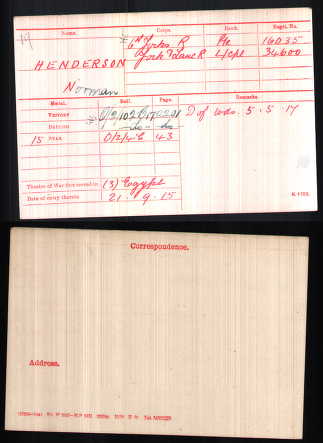 Name. Corps. Rank. Regtl. No.
Yorks R Pte 16035
HENDERSON York & Lanc R L/Cpl 34600
Norman
Medal. Roll. Page Remarks.
Victory D of wds. 5.5.17
British do do
15 STAR 43
Theatre of War first served in (3) Egypt
Date of entry therein 21. 9. 15
Correspondence.
Address.